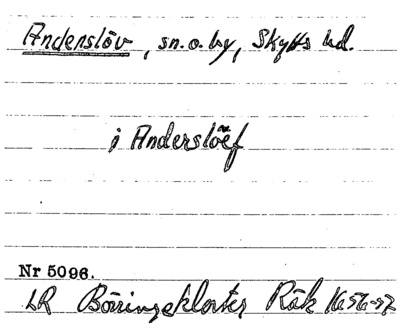 Anderslöv, sn. o. by, Skytts hd.
i Anderslöef
Nr 5096.
LR Börringekloster Räk 1656-57